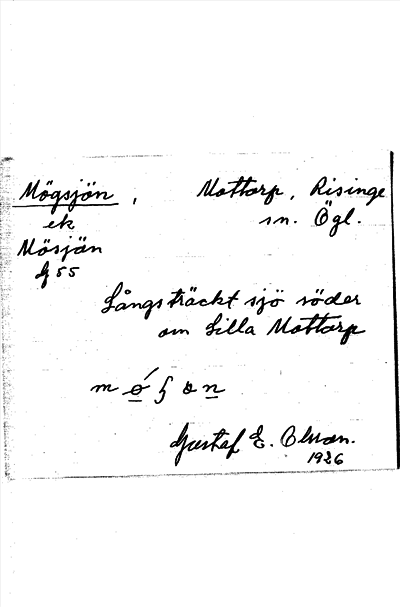 Mögsjön, Mottorp, Risinge
ek sn. Ögl.
Mösjön
G 55
Långsträckt sjö söder
om Lilla Mottorp
Gustaf E. Olsson.
1926